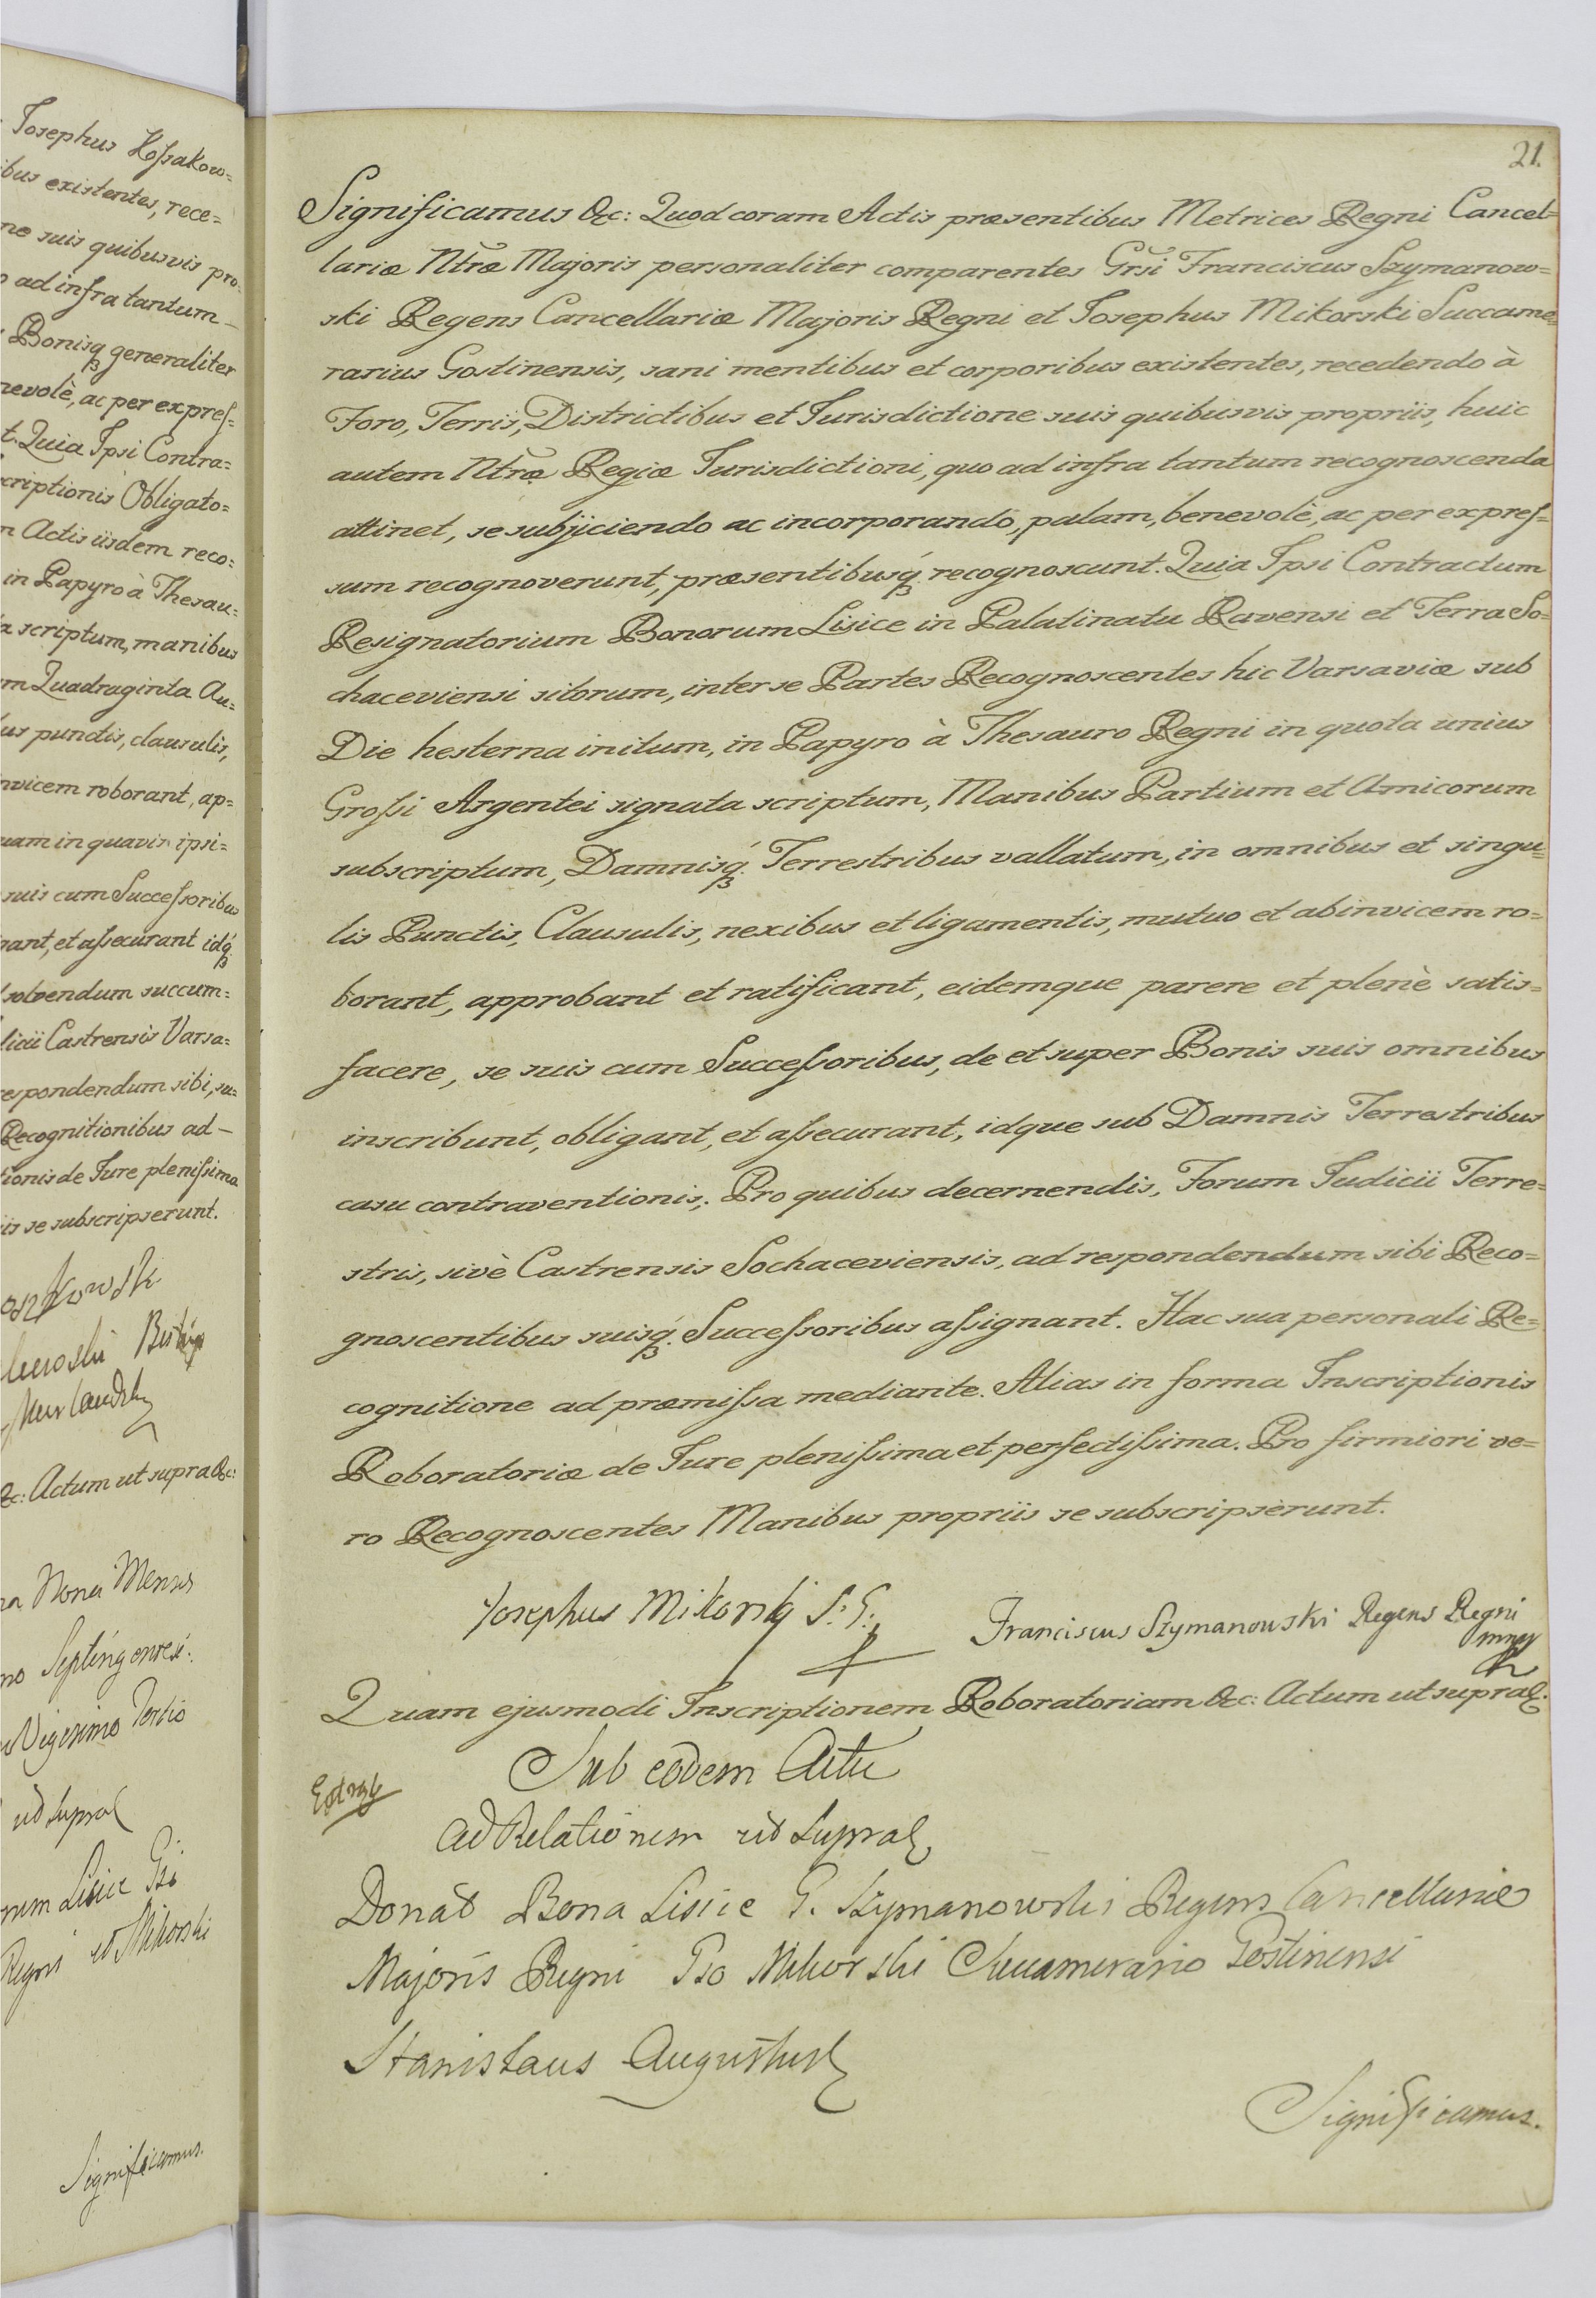 Josephus Kossakow=
bus existentes, rece=
suis quibusvis pro=
ad infra tantum
Bonisq generaliter
nevolè, ac per expres=
t. Quia Ipsi Contra=
scriptionis Obligato=
Actis iisdem reco=
in Papyro à Thesau=
scriptum, manibus
Quadraginta Au=
punctis, clausulis,
nvicem roborant, ap=
in quavis ipsi=
suis cum Successoribus
nant, et assecurant idq
solvendum succum=
Castrensis Varsa=
respondendum sibi, su=
Recognitionibus ad
tionis de Jure plenissima
iis se subscripserunt.
&c: Actum ut supra &c:
Nona Mensis
Vigesimo Tertio
ut supra
Lisice
Regni et Mikorski
Significamus.
21.
Significamus &c: Quod coram Actis præsentibus Metrices Regni Cancel=
lariæ Ntræ Majoris personaliter comparentes Grsi Franciscus Szymanow=
ski Regens Cancellariæ Majoris Regni et Josephus Mikorski Succame=
rarius Gostinensis, sani mentibus et corporibus existentes, recedendo à
Foro, Terris, Districtibus et Jurisdictione suis quibusvis propriis, huic
autem Ntræ Regiæ Jurisdictioni, quo ad infra tantum recognoscenda
attinet, se subjiciendo ac incorporando, palam, benevolè, ac per expres=
sum recognoverunt, præsentibusq recognoscunt. Quia Ipsi Contractum
Resignatorium Bonorum Lisice in Palatinatu Ravensi et Terra So=
chaceviensi sitorum, inter se Partes Recognoscentes hic Varsaviæ sub
Die hesterna initum, in Papyro à Thesauro Regni in quota unius
Grossi Argentei signata scriptum, Manibus Partium et Amicorum
subscriptum, Damnisq. Terrestribus vallatum, in omnibus et singu=
lis Punctis, Clausulis, nexibus et ligamentis, mutuo et abinvicem ro=
borant, approbant et ratificant, eidemque parere et plenè satis=
facere, se suis cum Successoribus, de et super Bonis suis omnibus
inscribunt, obligant, et assecurant, idque sub Damnis Terrestribus
casu contraventionis,. Pro quibus decernendis, Forum Judicii Terre=
stris, sivè Castrensis Sochaceviensis, ad respondendum sibi Reco=
gnoscentibus suisq. Successoribus assignant. Hac sua personali Re=
cognitione ad præmissa mediante. Alias in forma Inscriptionis
Roboratoriæ de Jure plenissima et perfectissima. Pro firmiori ve=
ro Recognoscentes Manibus propriis se subscripserunt.
Josephus Mikorski S. G.
Franciscus Szymanowski Regens Regni
Quam ejusmodi Inscriptionem Roboratoriam &c: Actum ut supra &.
Sub eodem Actu
Ad Relationem ut supra
Donat Bona Lisice G. Szymanowski Regens Cancellariæ
Majoris Regni Gso Mikorski Succamerario Gostinensi
Stanislaus Augustus
Significamus.